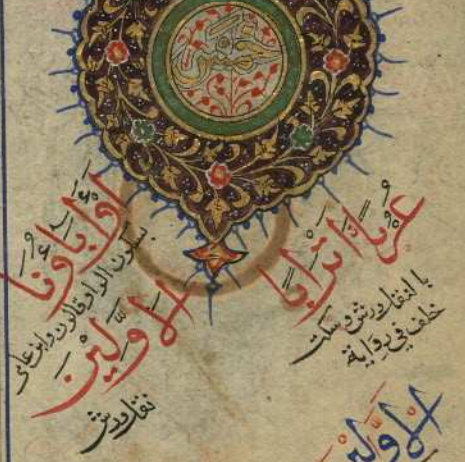 خمس
عُرُبًا اَتْرَابًا
بالنقل ورش وسكت
خلف في رواية
اَوْ اٰبَاؤُنَا
بسكون الواو قالون وابن عامر
الاَوَّلِينَ
نقل ورش
الاَوَّلِينَ